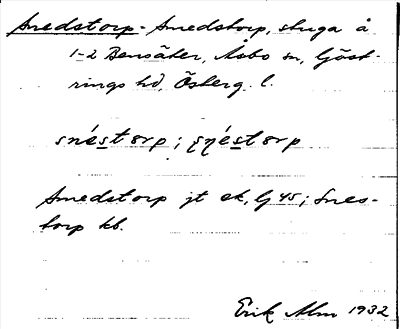 Smedstorp - Smedstorp, stuga å
1-2 Bensäter, Åsbo sn, Göst-
rings hd, Österg. l.
snéstorp; snéstorp
Smedstorp jt ek, Gj 45; Snes-
torp kb.
Erik Alm 1932